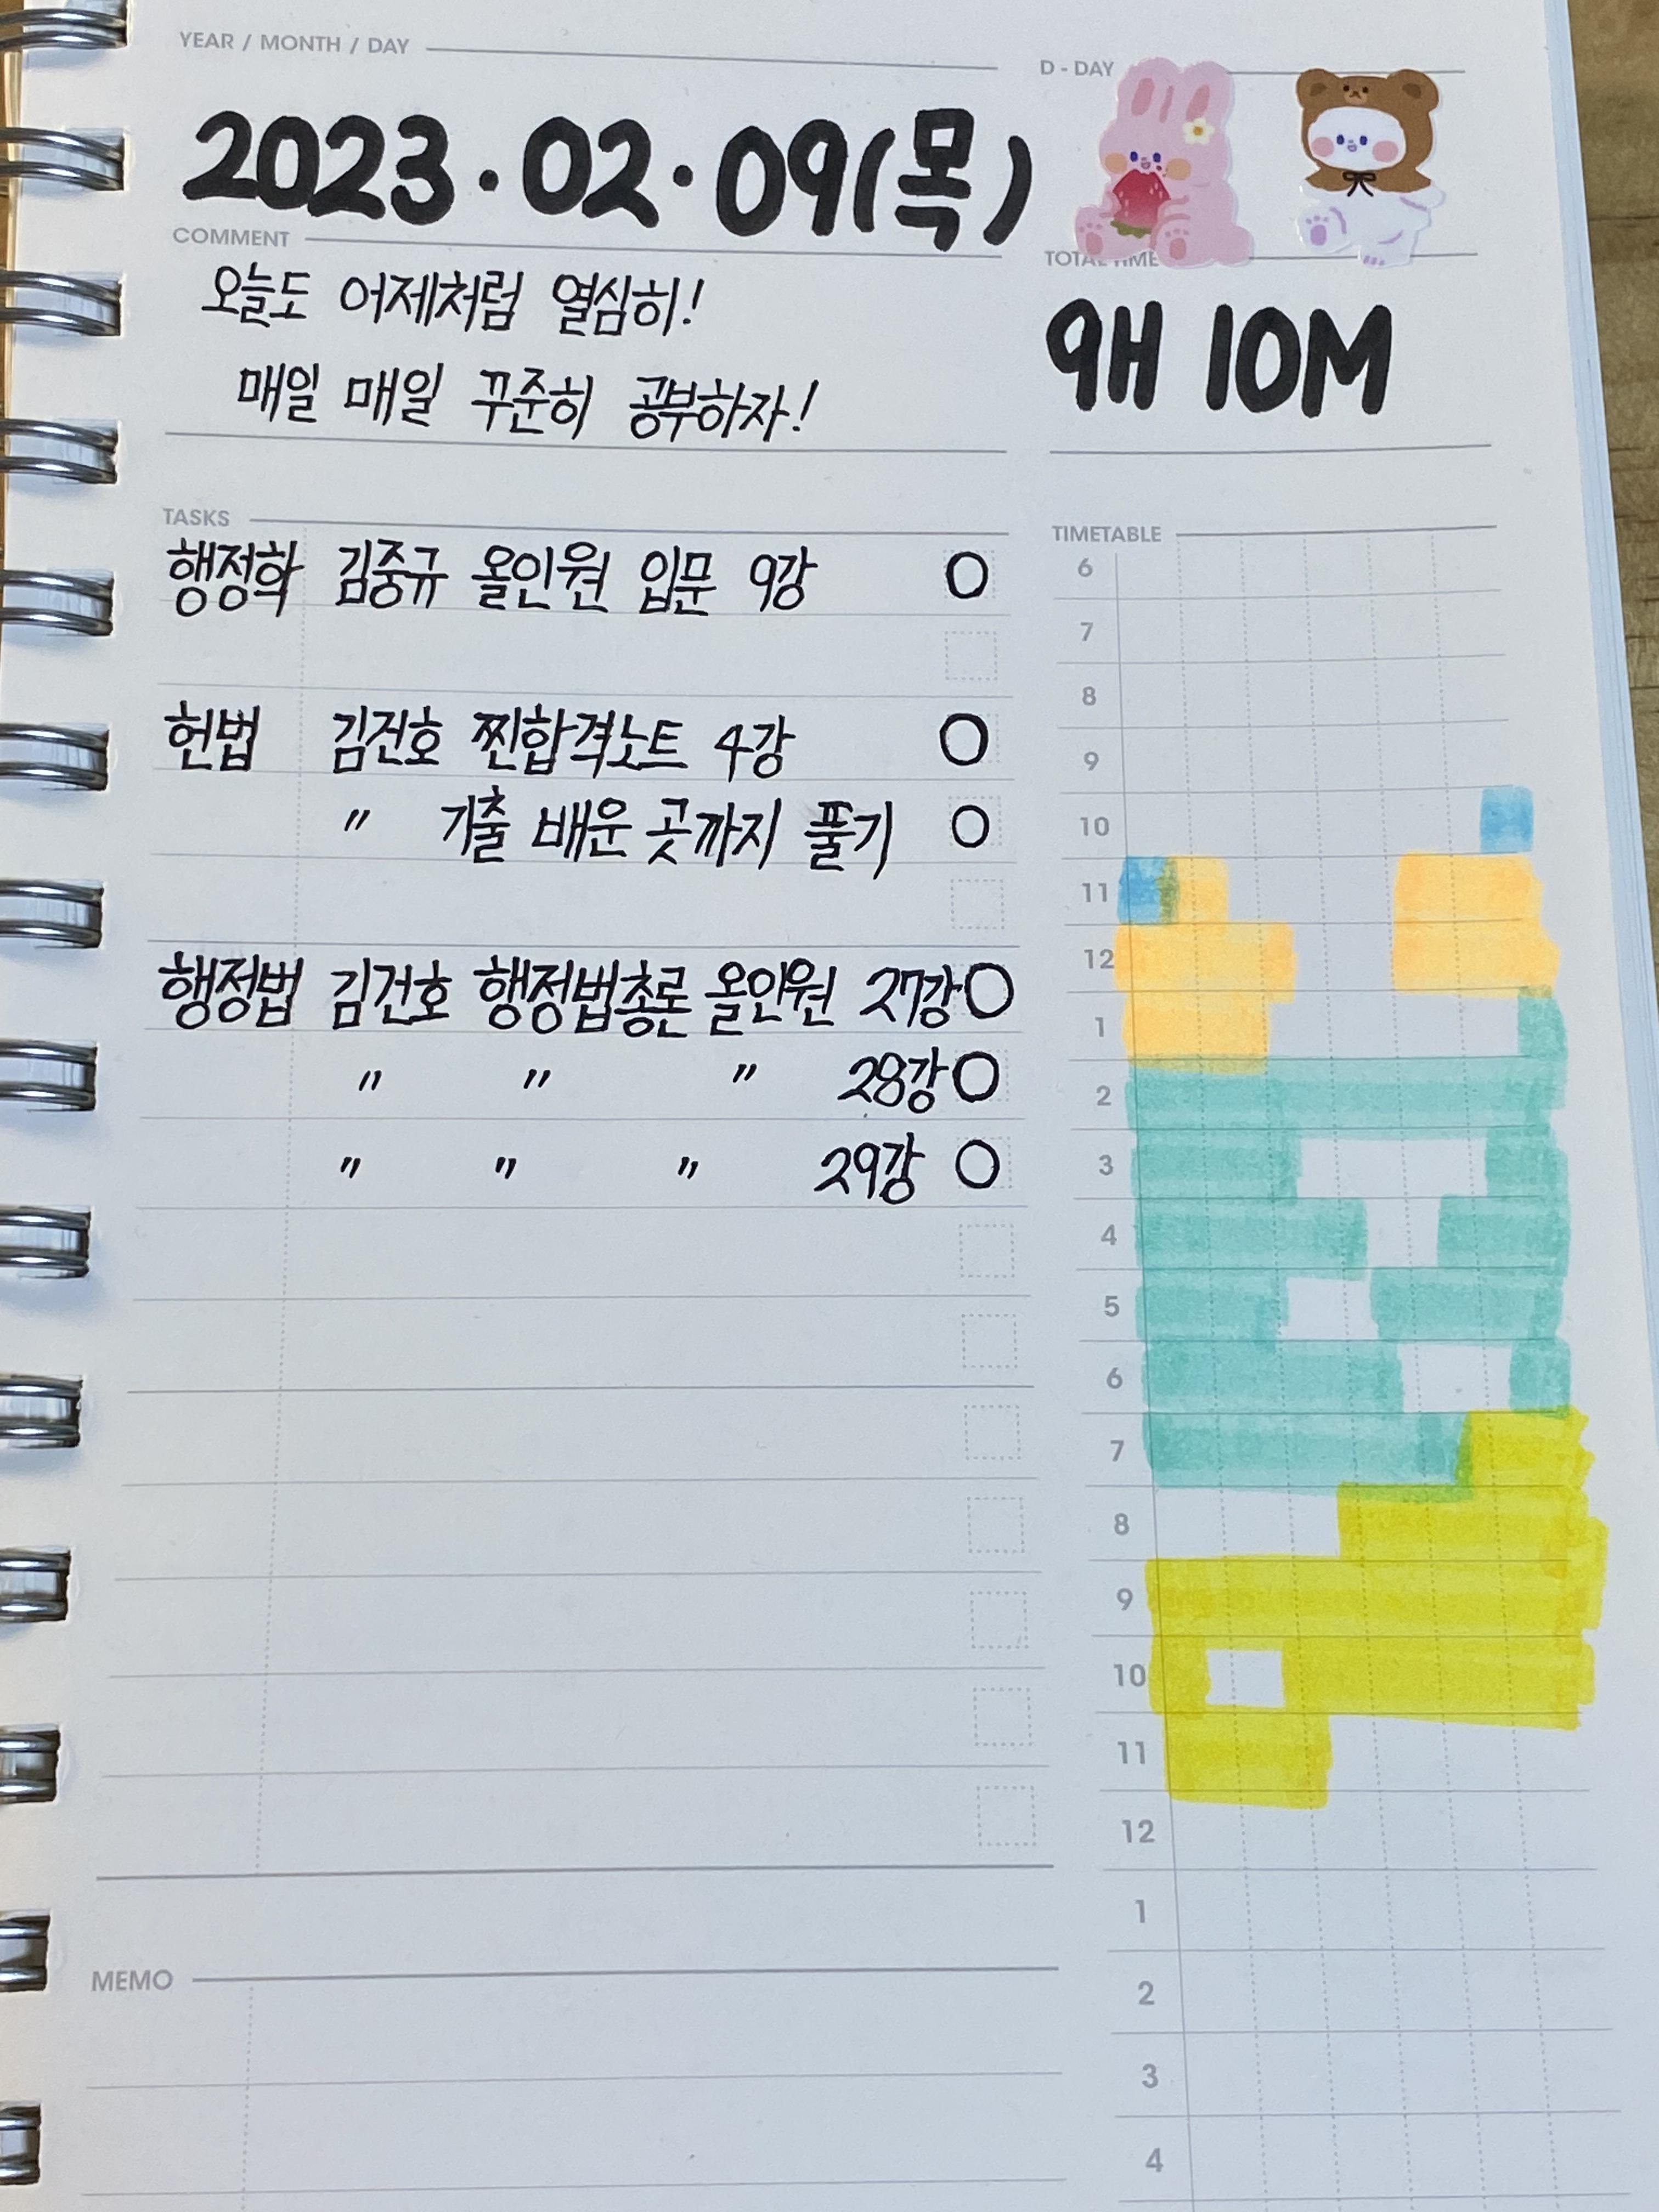 YEAR / MONTH / DAY
2023.02.09(목)
D - DAY
COMMENT
오늘도 어제처럼 열심히!
매일 매일 꾸준히 공부하자!
TOTAL TIME
9H 10M
TASKS
행정학 김중규 올인원 입문 9강 O
헌법 김건호 찐합격노트 4강 O
〃 기출 배운 곳까지 풀기 O
행정법 김건호 행정법총론 올인원 27강 O
〃 〃 〃 28강 O
〃 〃 〃 29강 O
TIMETABLE
6
7
8
9
10
11
12
1
2
3
4
5
6
7
8
9
10
11
12
1
2
3
4
MEMO